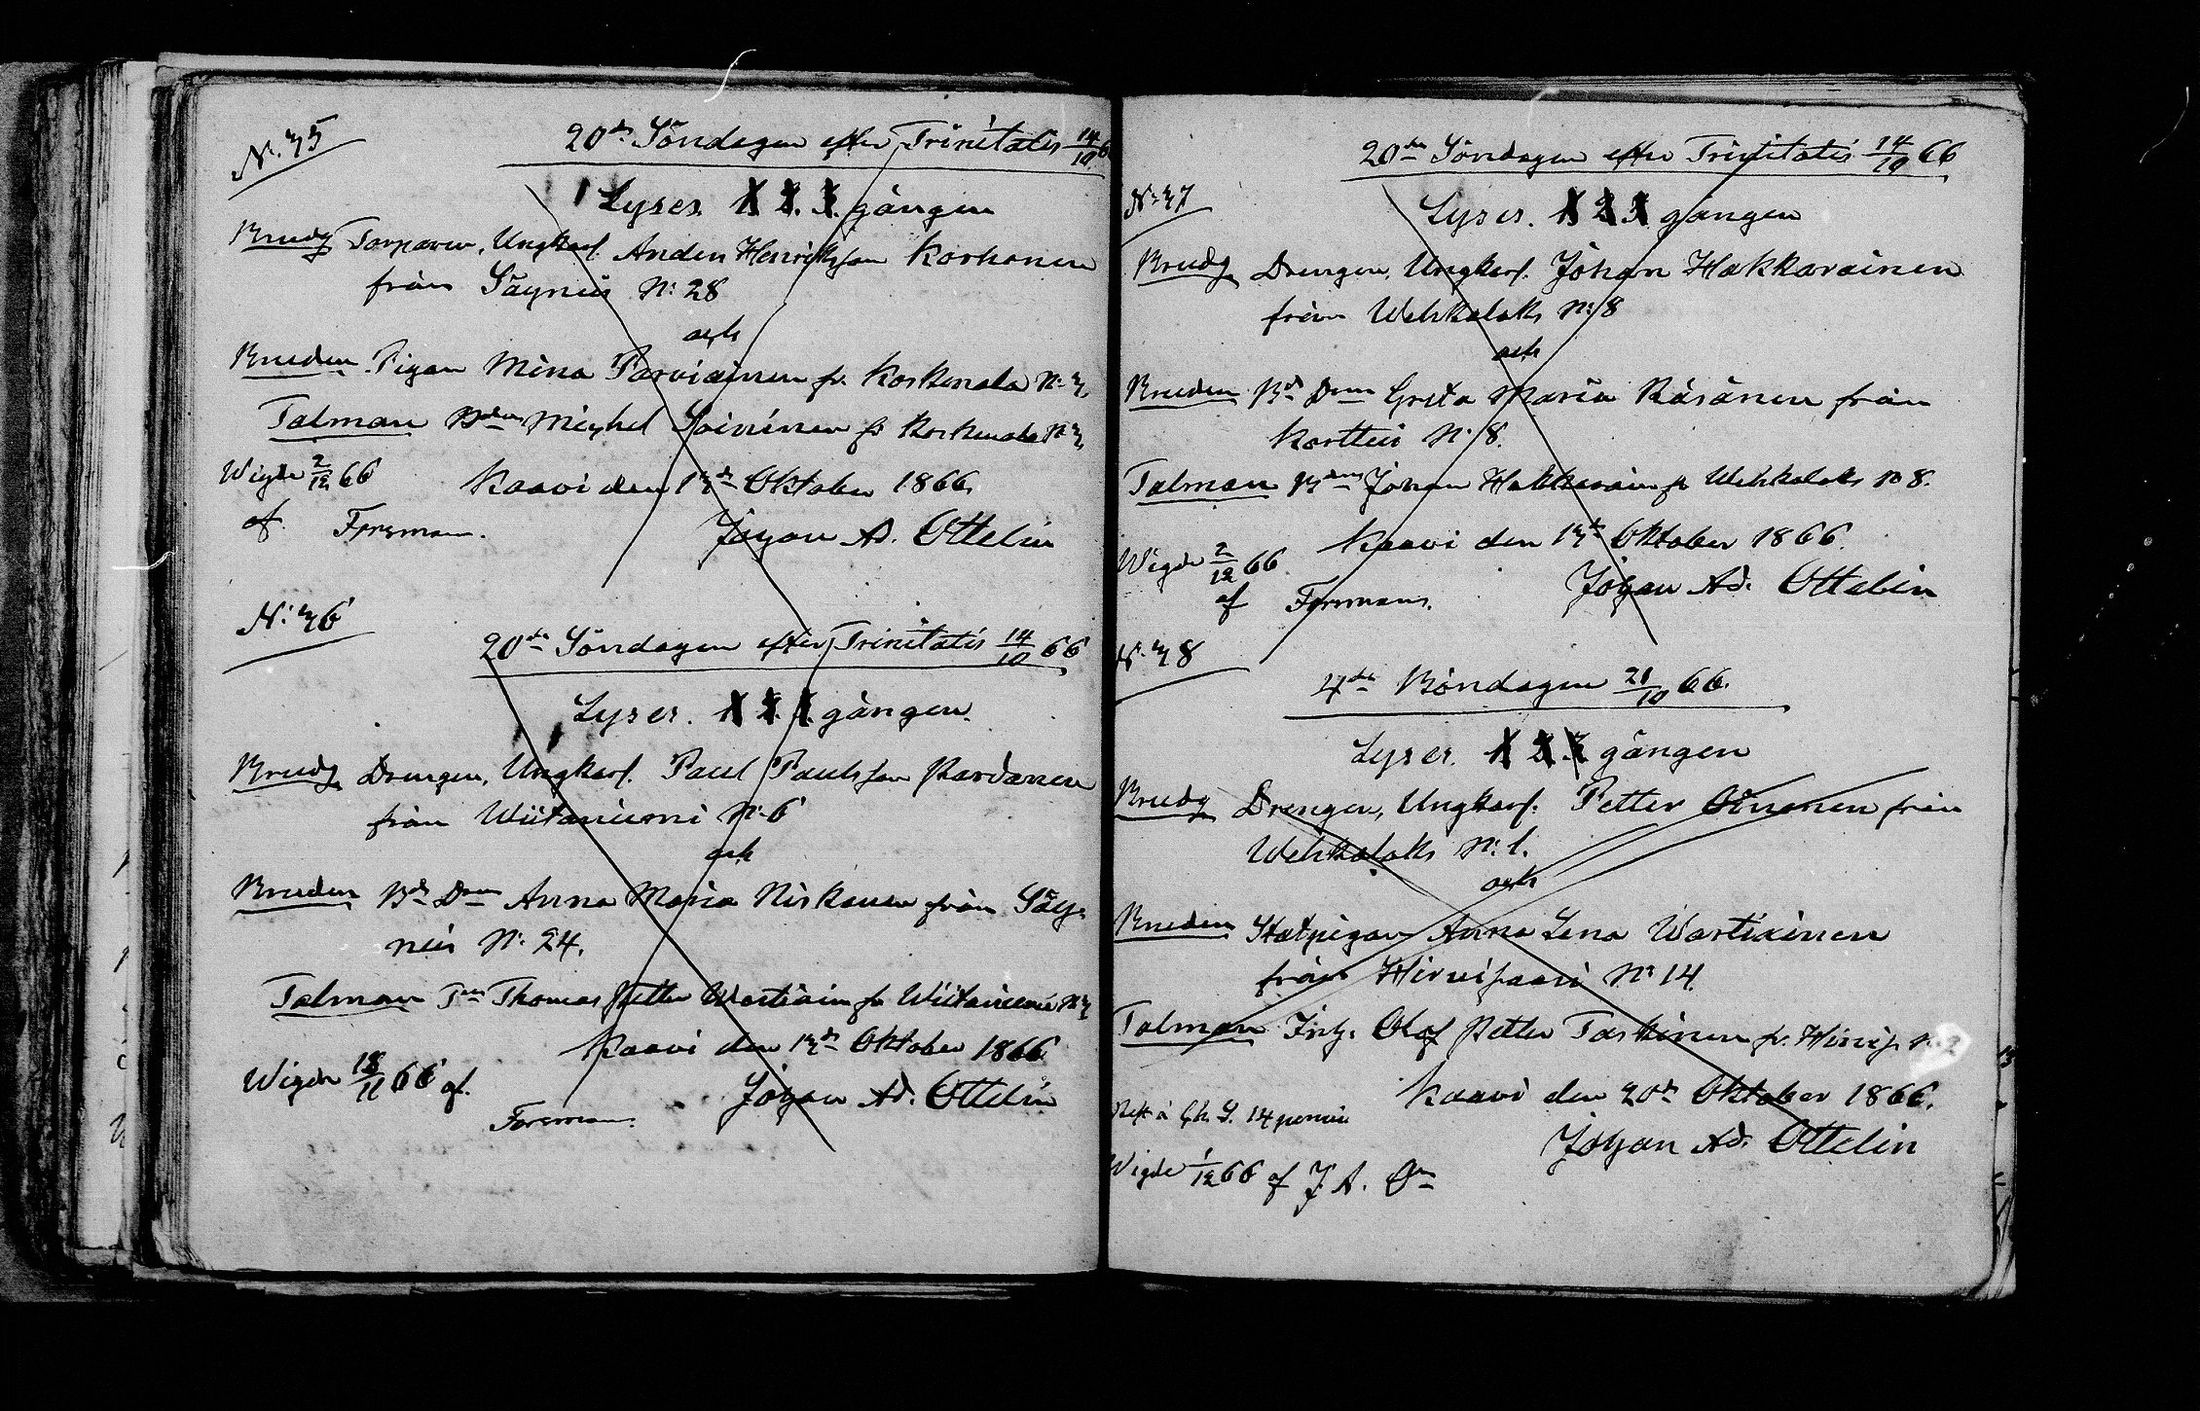 N: 35
20de Söndagen efter Trinitatis 14/10 6
Lyses. 1. 2. 3. gången
Brudg Torparen, Ungkarl. Anders Henriksson Korhonen
från Säyneis N: 28
och
Bruden Pigan Mina Parviainen fr. Koskenala N: 3
Talman Bden Michel Soininen fr Koskenala N 3
Wigde 2/12 66
Kaavi den 13de Oktober 1866.
af Forsman.
Johan Ad. Ottelin
N: 36
20de Söndagen efter Trinitatis 14/10 66
Lyses. 1. 2. 3. gången.
Brudg Drengen, Ungkarl. Paul Paulsson Pardanen
från Wiitaniemi N: 6
och
Bruden Bd Dren Anna Maria Niskanen från Säy-
neis N: 24.
Talman Thomas Petter Wartiain fr Wiitaniemi N 3
Kaavi den 13de Oktober 1866
Wigde 18/11 66 af.
Forsman.
Johan Ad. Ottelin
20de Söndagen efter Trinitatis 14/10 66
N: 37
Lyses. 1 2 3 gången
Brudg Drengen, Ungkarl. Johan Hakkarainen
från Wehkalaks N: 8
och
Bruden Bd Dren Greta Maria Räsänen från
Kortteis N: 8.
Talman Bden Johan Hakkarain fr Wehkalaks N 8.
Kaavi den 13de Oktober 1866.
Wigde 2/12 66
af Forsman.
Johan Ad. Ottelin
N: 38
4de Böndagen 21/10 66.
Lyses. 1 2. 3 gången
Brudg Drengen, Ungkarl. Petter Oinonen från
Wehkalaks N: 1.
och
Bruden Statpigan Anna Lena Wartiainen
från Hirvisaari N: 14
Talman Inh. Olof Petter Taskinen fr. Hirvis. N: 2
Kaavi den 20de Oktober 1866.
14 penni
Johan Ad. Ottelin
Wigde 1/12 66 af J. A. On